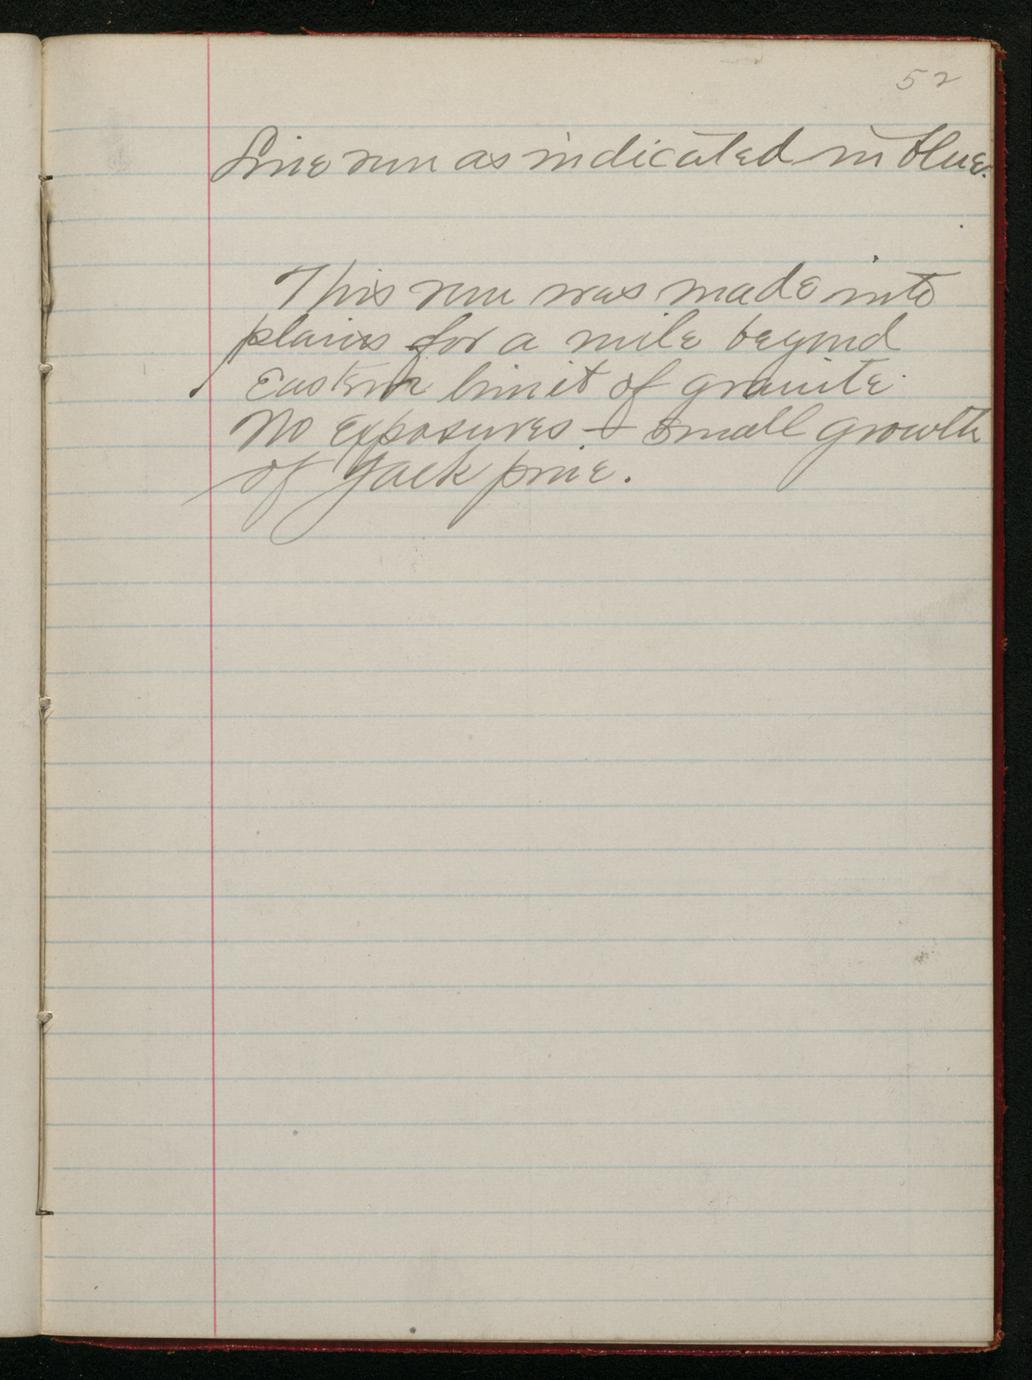 52
Line run as indicated in blue.
This run was made into
plains for a mile beyond
Eastern limit of granite.
No exposures - small growth
of Jack pine.